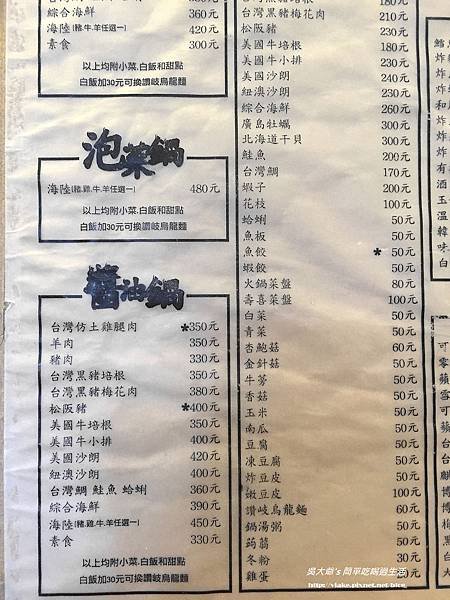 綜合海鮮 360元
海陸(豬.雞.牛.羊任選一) 420元
素食 300元
以上均附小菜.白飯和甜點
白飯加30元可換讚岐烏龍麵
泡菜鍋
海陸(豬.雞.牛.羊任選一) 480元
以上均附小菜.白飯和甜點
白飯加30元可換讚岐烏龍麵
醬油鍋
台灣仿土雞腿肉 *350元
羊肉 350元
豬肉 330元
台灣黑豬培根 350元
台灣黑豬梅花肉 380元
松阪豬 *400元
美國牛培根 350元
美國牛小排 400元
美國沙朗 420元
紐澳沙朗 400元
台灣鯛 鮭魚 蛤蜊 360元
綜合海鮮 390元
海陸(豬.雞.牛.羊任選一) 450元
素食 330元
以上均附小菜.白飯和甜點
白飯加30元可換讚岐烏龍麵
台灣黑豬培根 180元
台灣黑豬梅花肉 210元
松阪豬 230元
美國牛培根 180元
美國牛小排 230元
美國沙朗 240元
紐澳沙朗 230元
綜合海鮮 260元
廣島牡蠣 300元
北海道干貝 300元
鮭魚 200元
台灣鯛 170元
蝦子 200元
花枝 100元
蛤蜊 50元
魚板 50元
魚餃 * 50元
蝦餃 50元
火鍋菜盤 80元
壽喜菜盤 100元
白菜 50元
青菜 50元
杏鮑菇 60元
金針菇 50元
牛蒡 50元
香菇 50元
玉米 50元
南瓜 50元
豆腐 50元
凍豆腐 50元
炸豆皮 50元
嫩豆皮 100元
讚岐烏龍麵 60元
鍋湯粥 50元
蒟蒻 50元
冬粉 30元
雞蛋 20元
炸
炸
和
炸
炸
炸
有
酒
玉
溫
韓
味
白
可
零
蘋
雪
可
蘋
台
台
麒
博
博
梅
黑
台
火
吳大爺's 簡單吃喝過生活
http://vlake.pixnet.net/blog